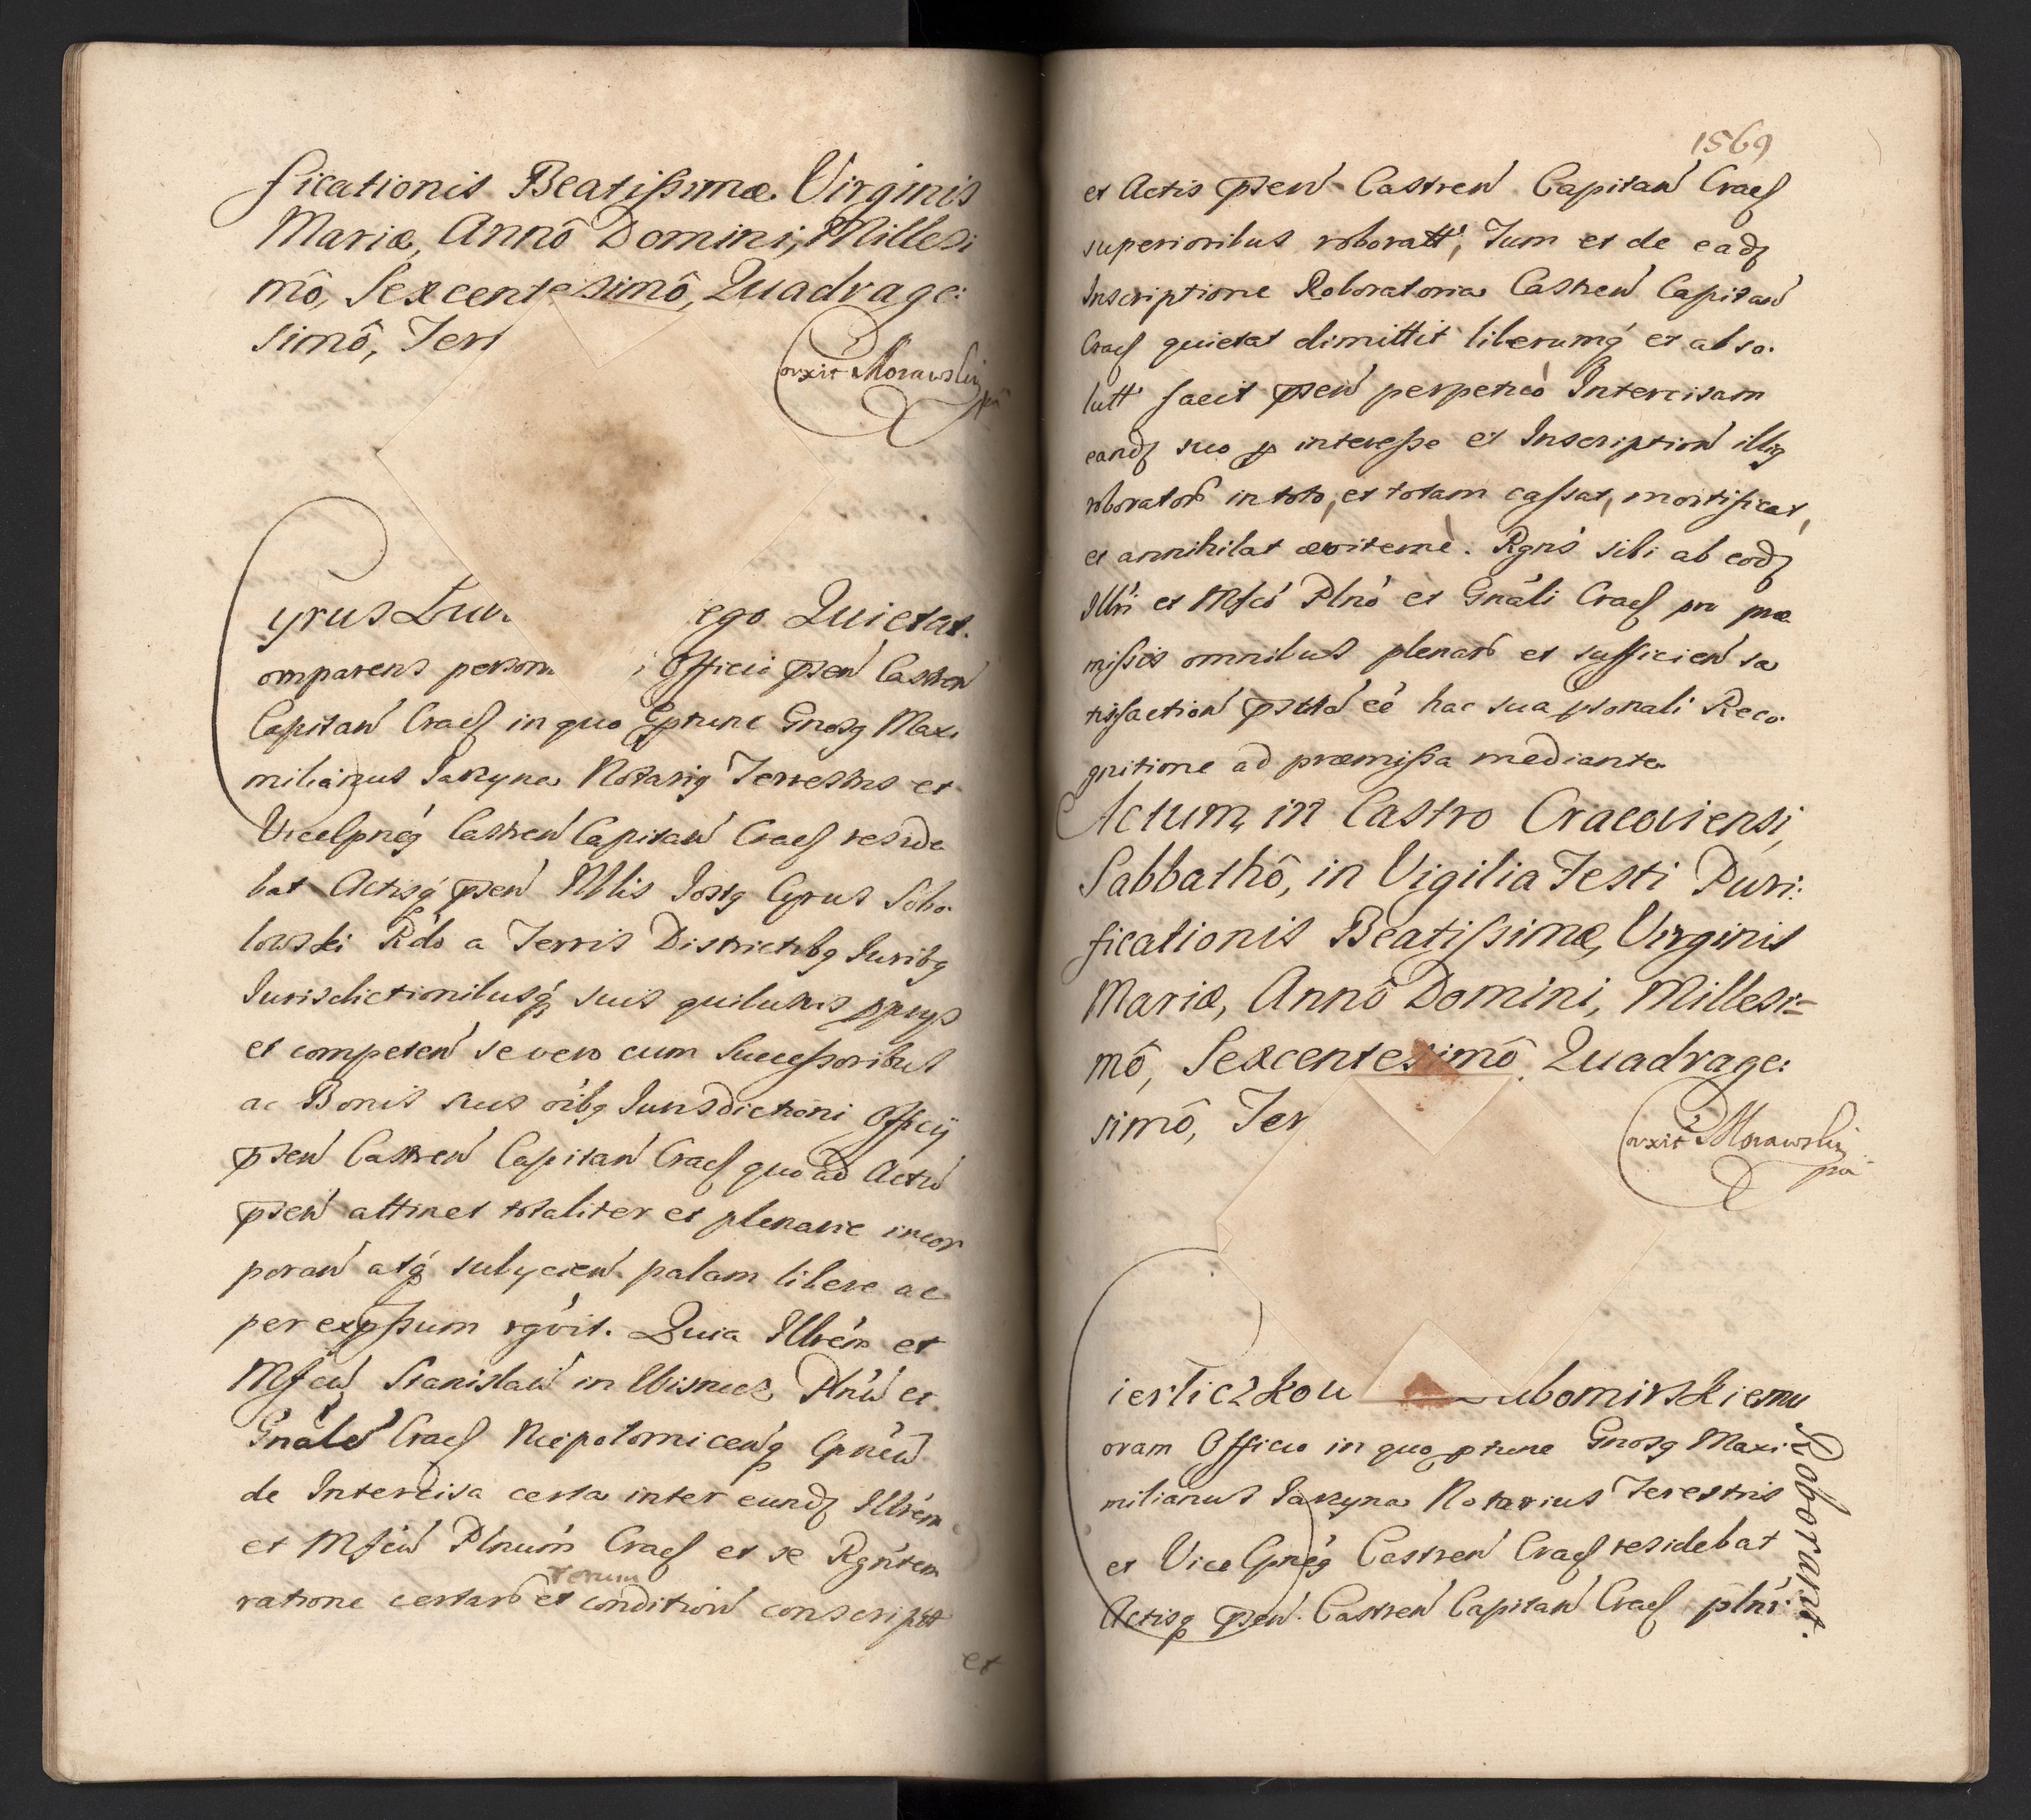 ficationis Beatißimæ Virginis
Mariæ, Annô Domini, Millesi
mô, Sexcentesimô, Quadrage:
simô, Ter
Corxit Morawski
yrus Lu ego Quietat.
omparens person Officii pñsen Castren
Capitan Cracs in quo Gnosg Maxi
milianus Jaxyna Notarig Terrestris et
Castren Capitan Cracs reside
bat Actisq́ pñsen Nblis Cyrus Sobo
lowski Rdo a Terris Districtibg Juribg
Jurisdictionilusq́ suis quibusvis
et competen se vero cum Succeßoribus
ac Bonis suis oibg Jurisdictioni Officij
pñsen Castren Capitan Cracs quo ad Actu
pñsen attinet totaliter et plenarie incor
poran atq́ subycien palam libere ac
per expßum rgóit. Quia Illrém et
Mfcu Stanislau in Wisnicz Plnú et
Gnále Cracs
de Intercisa certa inter eundz Illrém
et Mfcú Plnum Cracs et se Rgntem
ratione certarú rerum et condition conscriptt
et
1569
et Actis pñsen Castren Capitan Cracs
superioribus roboratt, Tum et de eadz
Inscriptione Roboratoria Castren Capitan
Cracs quietat dimittit liberumq́ et abso.
lutt facit pñsen perpetuò Intercisam
eandz suo p intereße et Inscription illig
roborator in toto, et totam caßat, mortificat,
et annihilat æviternè. Rgns sibi ab eodz
Illri et Mfcó Plnó et Gnáli Cracs pro præ
mißis omnibus plenar et sufficien sa
tisfaction eé hac sua psonali Reco.
gnitione ad præmißa mediante
Actum, in Castro Cracoviensi,
Sabbathô, in Vigilia Festi Puri:
ficationis Beatißimæ, Virginis
Mariæ, Annô Domini, Millesi=
mô, Sexcentesimô, Quadrage:
simô, Ter
Corxit Morawski
ierliczkow Lubomirskiemu
Roborant.
oram Officio in quo ptunc Gnosg Maxi
milianus Jaxyna Notarius Terestris
et Vice Castren Cracs residebat
Actisq pñsen Castren Capitan Cracs plnr